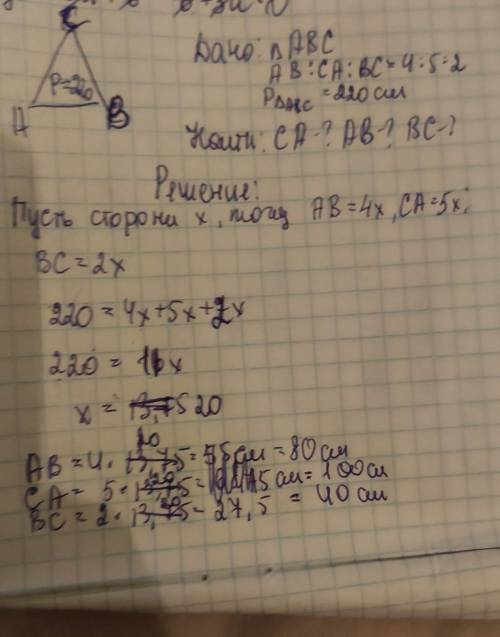 C
P=220
A
B
Дано: △ABC
AB:CA:BC=4:5:2
P△ABC=220см
Найти: CA-? AB-? BC-?
Решение:
Пусть сторона x, тогда AB=4x, CA=5x,
BC=2x
220=4x+5x+2x
220=11x
x=13,75 20
AB=4·13,75 20=55см=80см
CA=5·13,75 20= см=100см
BC=2·13,75 20=27,5=40см